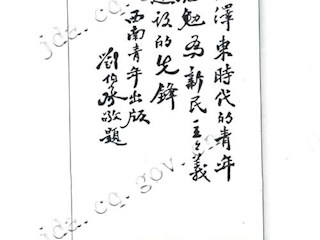 澤東時代的青年
勉為新民主々義
設的先鋒
西南青年出版
劉伯承敬題
jda.cq.gov.cn
jda.cq.gov.